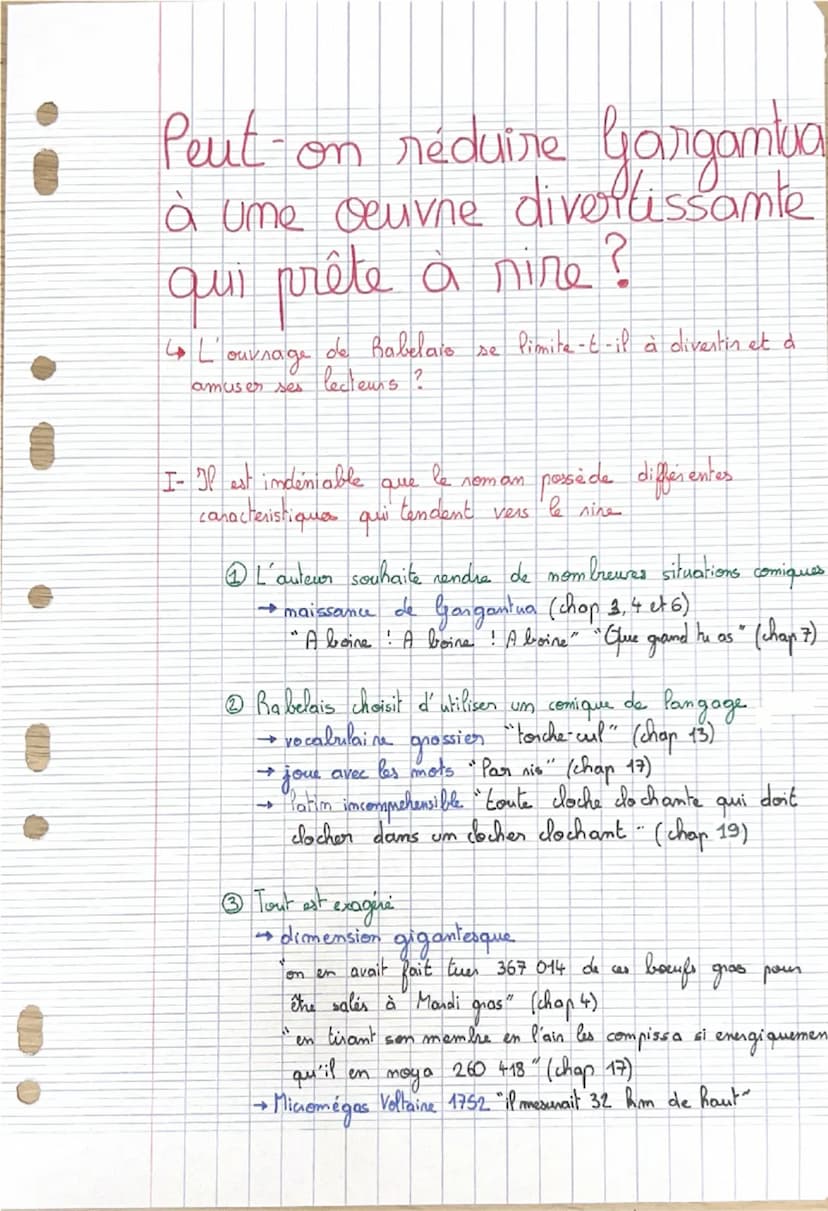 Peut-on réduire Gargantua
à une oeuvre divertissante
qui prête à rire ?
↳ L'ouvrage de Rabelais se limite-t-il à divertir et à
amuser ses lecteurs ?
I- Il est indéniable que le roman possède différentes
caractéristiques qui tendent vers le rire
① L'auteur souhaite rendre de nombreuses situations comiques
→ naissance de Gargantua (chap 3, 4 et 6)
"A boire ! A boire ! A boire" "Que grand tu as" (chap 7)
② Rabelais choisit d'utiliser un comique de langage
→ vocabulaire grossier "torche-cul" (chap 13)
→ joue avec les mots "Par ris" (chap 17)
→ latin incompréhensible "toute cloche clochante qui doit
clocher dans un clocher clochant" (chap 19)
③ Tout est exagéré
→ dimension gigantesque
"on en avait fait tuer 367 014 de ces boeufs gras pour
être salés à Mardi gras" (chap 4)
"en tirant son membre en l'air les compissa si energiquemen
qu'il en noya 260 418" (chap 17)
→ Micromégas Voltaire 1752 "il mesurait 32 km de haut"